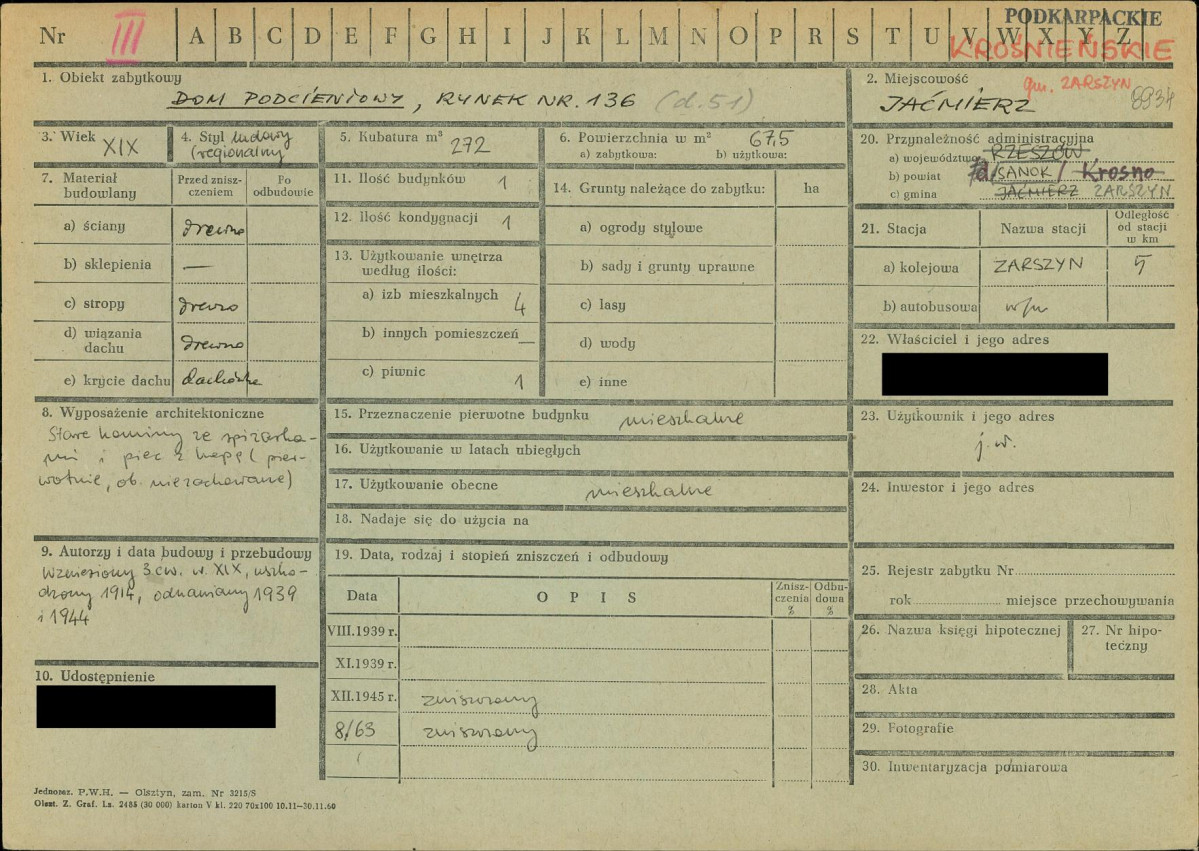 PODKARPACKIE
Nr III A B C D E F G H I J K L M N O P R S T U V W X Y Z
KROŚNIEŃSKIE
1. Obiekt zabytkowy
DOM PODCIENIOWY, RYNEK NR. 136 (d. 51)
2. Miejscowość
gm. ZARSZYN
JAĆMIERZ
8934
3. Wiek XIX
4. Styl ludowy
(regionalny)
5. Kubatura m³ 272
6. Powierzchnia w m² 67,5
a) zabytkowa: b) użytkowa:
7. Materiał budowlany
Przed zniszczeniem
Po odbudowie
a) ściany drewno
b) sklepienia —
c) stropy drewno
d) wiązania dachu drewno
e) krycie dachu dachówka
8. Wyposażenie architektoniczne
Stare kominy ze spiżarka-
mi i piec z kapą (pier-
wotnie, ob. niezachowane)
9. Autorzy i data budowy i przebudowy
Wzniesiony 3 ćw. w. XIX, uszko-
dzony 1914, odnawiany 1939
i 1944
10. Udostępnienie
11. Ilość budynków 1
12. Ilość kondygnacji 1
13. Użytkowanie wnętrza
według ilości:
a) izb mieszkalnych 4
b) innych pomieszczeń —
c) piwnic 1
14. Grunty należące do zabytku: ha
a) ogrody stylowe
b) sady i grunty uprawne
c) lasy
d) wody
e) inne
15. Przeznaczenie pierwotne budynku mieszkalne
16. Użytkowanie w latach ubiegłych
17. Użytkowanie obecne mieszkalne
18. Nadaje się do użycia na
19. Data, rodzaj i stopień zniszczeń i odbudowy
Data OPIS Zniszczenia % Odbudowa %
VIII.1939 r.
XI.1939 r.
XII.1945 r. zniszczony
8/63 zniszczony
20. Przynależność administracyjna
a) województwo RZESZÓW
b) powiat SANOK / Krosno
c) gmina JAĆMIERZ ZARSZYN
21. Stacja
Nazwa stacji
Odległość
od stacji
w km
a) kolejowa ZARSZYN 5
b) autobusowa w/m
22. Właściciel i jego adres
23. Użytkownik i jego adres
j. w.
24. Inwestor i jego adres
25. Rejestr zabytku Nr
rok miejsce przechowywania
26. Nazwa księgi hipotecznej
27. Nr hipo-
teczny
28. Akta
29. Fotografie
30. Inwentaryzacja pomiarowa
Jednoraz. P.W.H. — Olsztyn, zam. Nr 3215/S
Olszt. Z. Graf. Ls. 2485 (30 000) karton V kl. 220 70x100 10.11—30.11.60